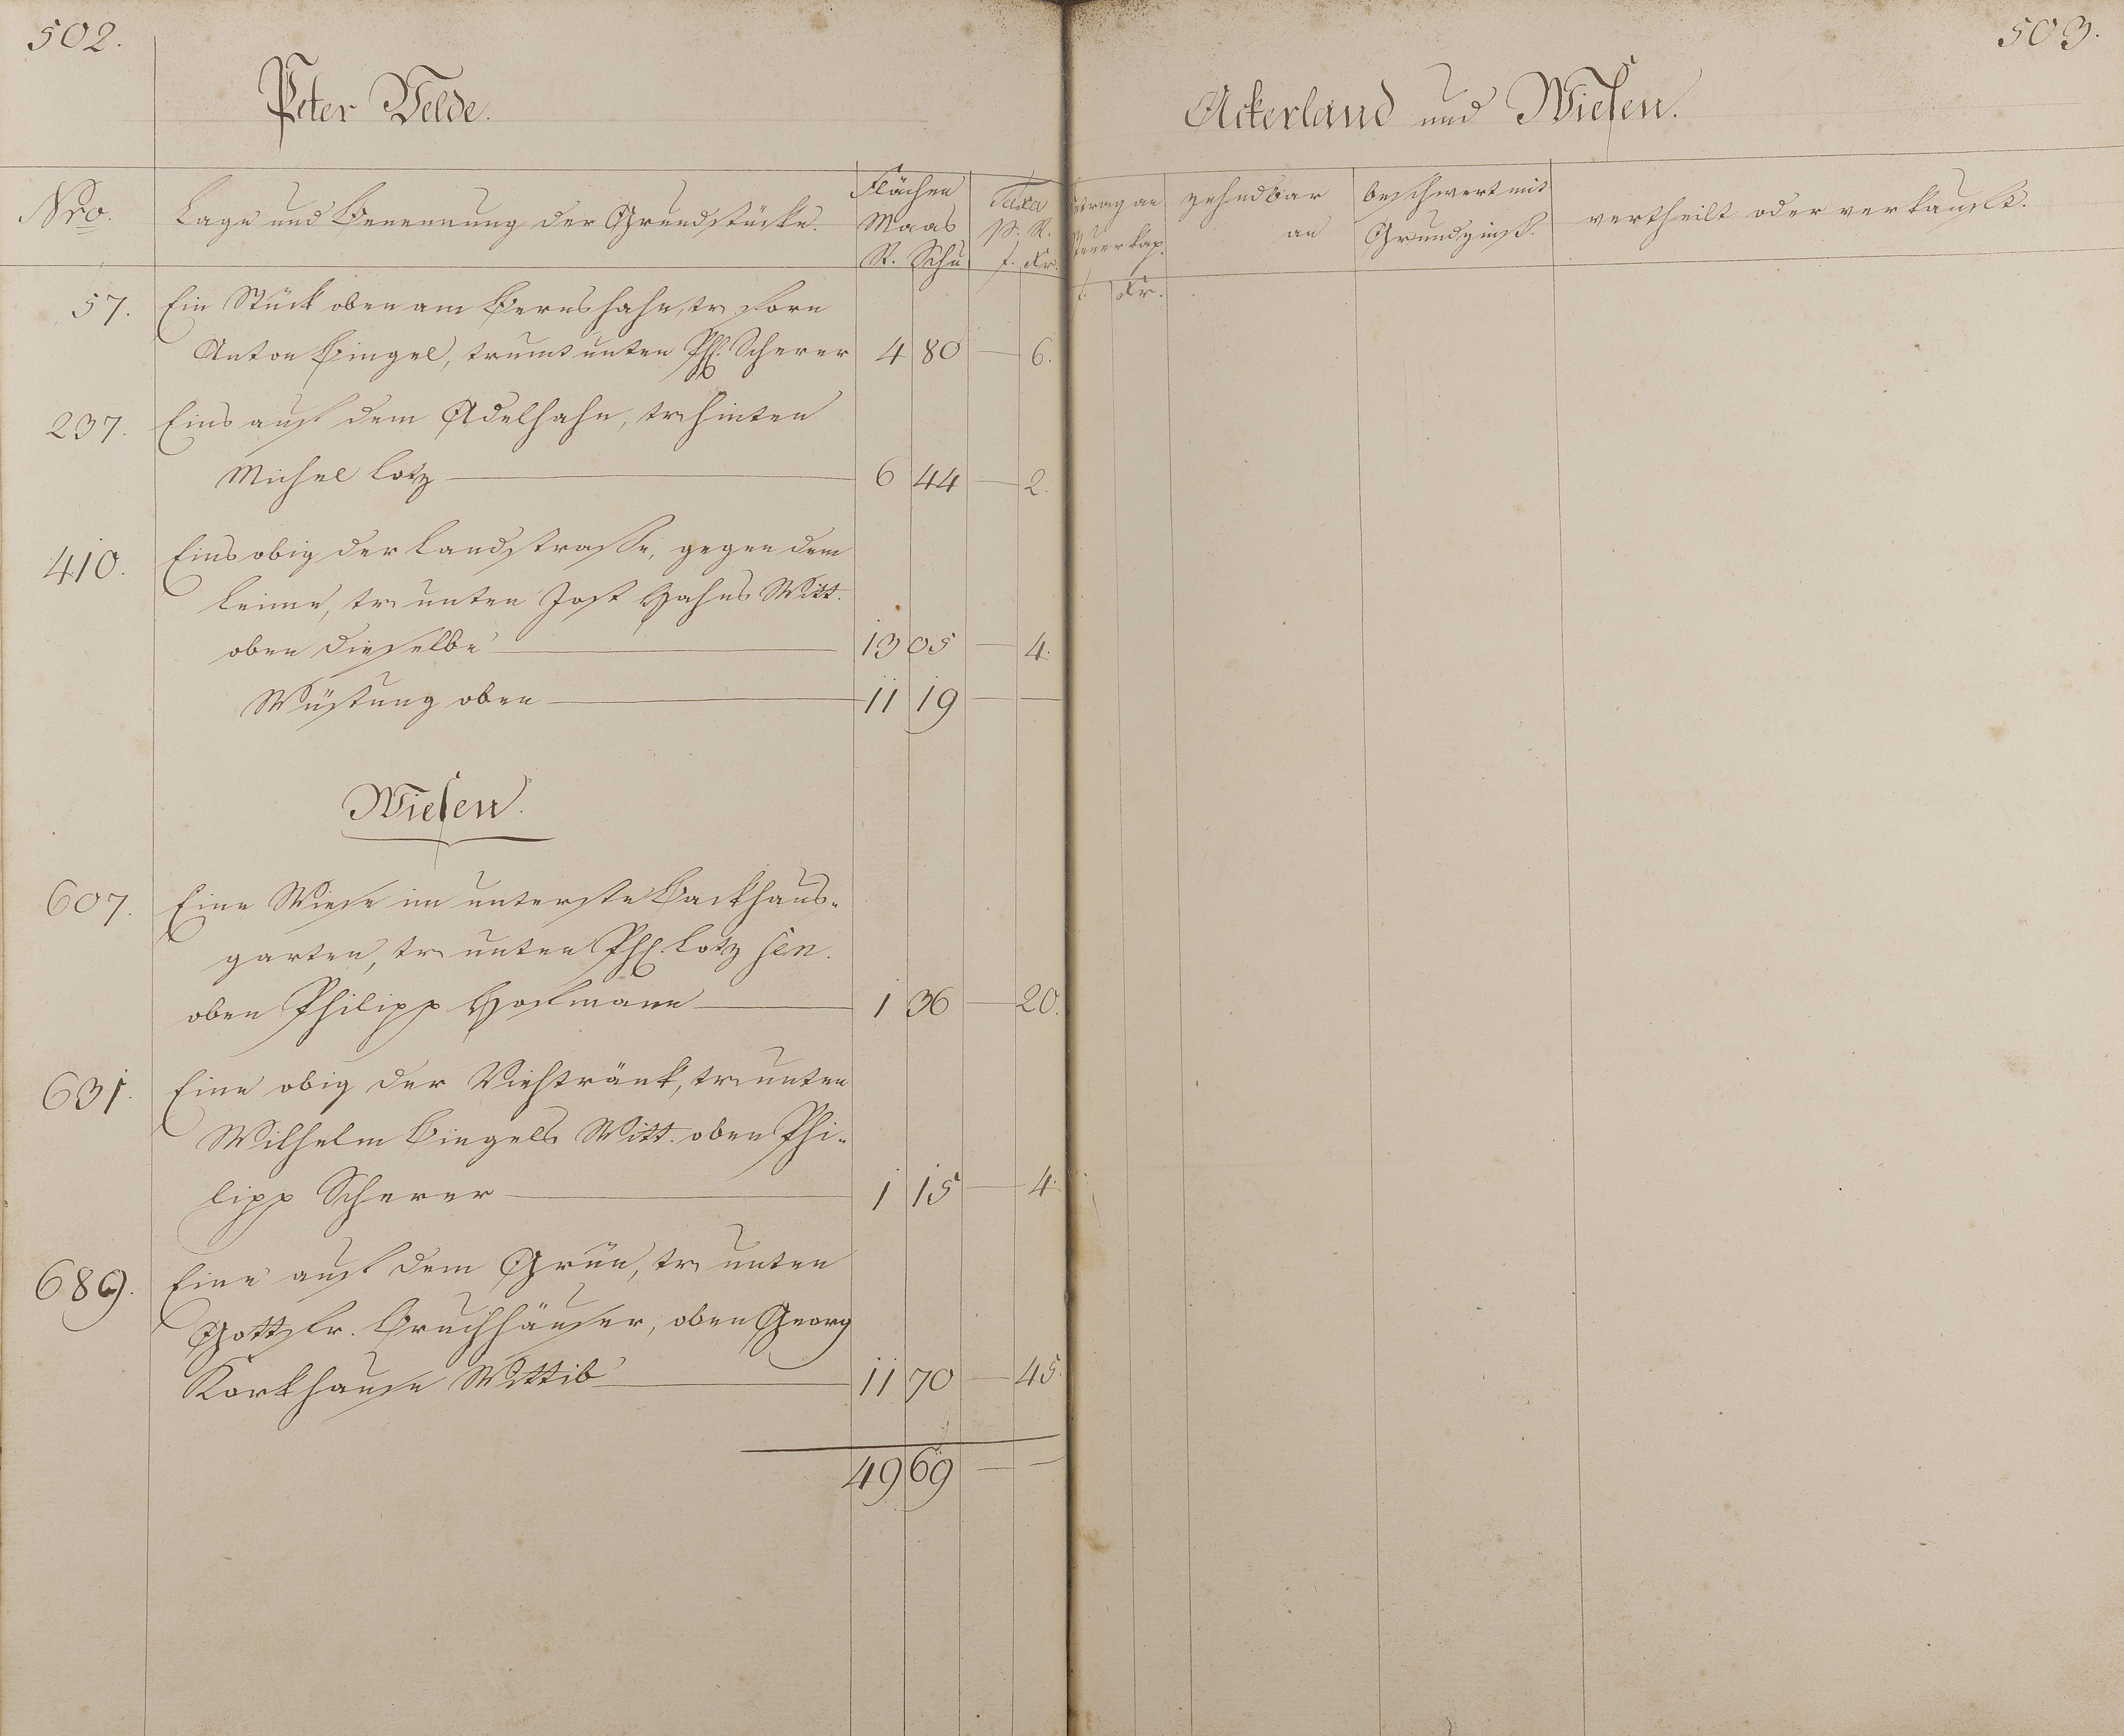 502.
Peter Velde.
Nro. Lage und Benennung der Grundstücke. Flächen Maas R. Schu Taxa p. R. f. Kr.
57. Ein Stück oben am Bernshahn, tr. forn
Anton Bingel, trumt unten Ph. Scherer 4 80 — 6.
237. Eins auf dem Adelhahn, tr. hinten
Michel Lotz 6 44 — 2.
410. Eins obig der Landstrasse, gegen dem
Leime, tr. unten Jost Hahns Witt.
oben dieselbe 13 05 — 4.
Wüstung oben 11 19 — —
Wiesen.
607. Eine Wiese im unterste Backhaus-
garten, tr. unten Ph. Lotz sen.
oben Philipp Hofmann 1 36 — 20.
631. Eine obig der Viehtränk, tr. unten
Wilhelm Bingels Witt. oben Phi-
lipp Scherer 1 15 — 4.
689. Eine auf dem Grün, tr. unten
Gottfr. Bruchhäuser, oben Georg
Korkhause Wittib 11 70 — 45.
49 69 — —
503.
Ackerland und Wiesen.
etrag an teuerkap. f. Kr. zehndbar an beschwert mit Grundzinß. vertheilt oder verkauft.